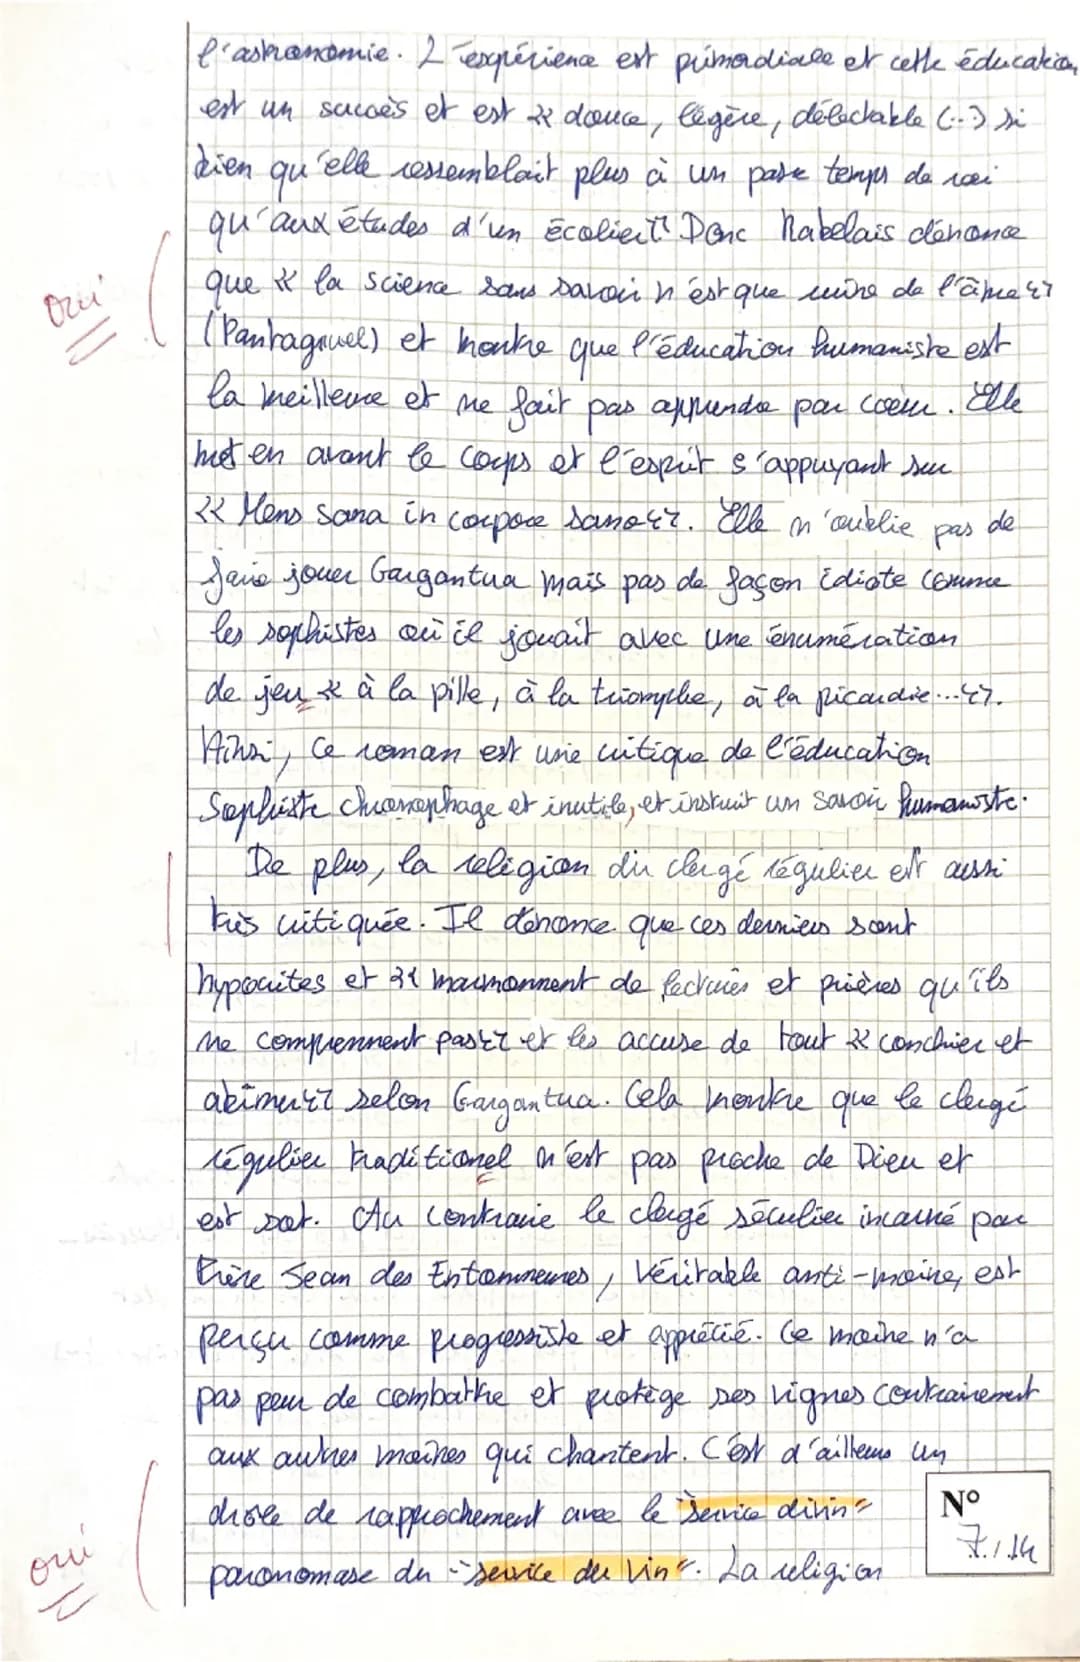 l'astronomie. L'expérience est primordiale et cette éducation
est un succès et est << douce, légère, délectable (...) si
bien qu'elle ressemblait plus à un passe temps de roi
qu'aux études d'un écolier >>. Donc Rabelais dénonce
oui
que << la science sans savoir n'est que ruine de l'âme >>
(Pantagruel) et montre que l'éducation humaniste est
la meilleure et ne fait pas apprendre par coeur. Elle
met en avant le corps et l'esprit s'appuyant sur
<< Mens sana in corpore sano >>. Elle n'oublie pas de
faire jouer Gargantua mais pas de façon idiote comme
les sophistes où il jouait avec une énumération
de jeu << à la pille, à la triomphe, à la picardie... >>.
Ainsi, ce roman est une critique de l'éducation
Sophiste chronophage et inutile, et instruit un savoir humaniste.
De plus, la religion du clergé régulier est aussi
très critiquée. Il dénonce que ces derniers sont
hypocrites et << marmonnent de lectures et prières qu'ils
ne comprennent pas >> et les accuse de tout << conchier et
abîmer >> selon Gargantua. Cela montre que le clergé
régulier traditionel n'est pas proche de Dieu et
est sot. Au contraire le clergé séculier incarné par
frère Jean des Entommeures, véritable anti-moine, est
perçu comme progressiste et apprécié. Ce moine n'a
pas peur de combattre et protège ses vignes contrairement
aux autres moines qui chantent. C'est d'ailleurs un
drôle de rapprochement avec le "service divin"
oui
paronomase du "service du vin". La religion
N°
7.1.14